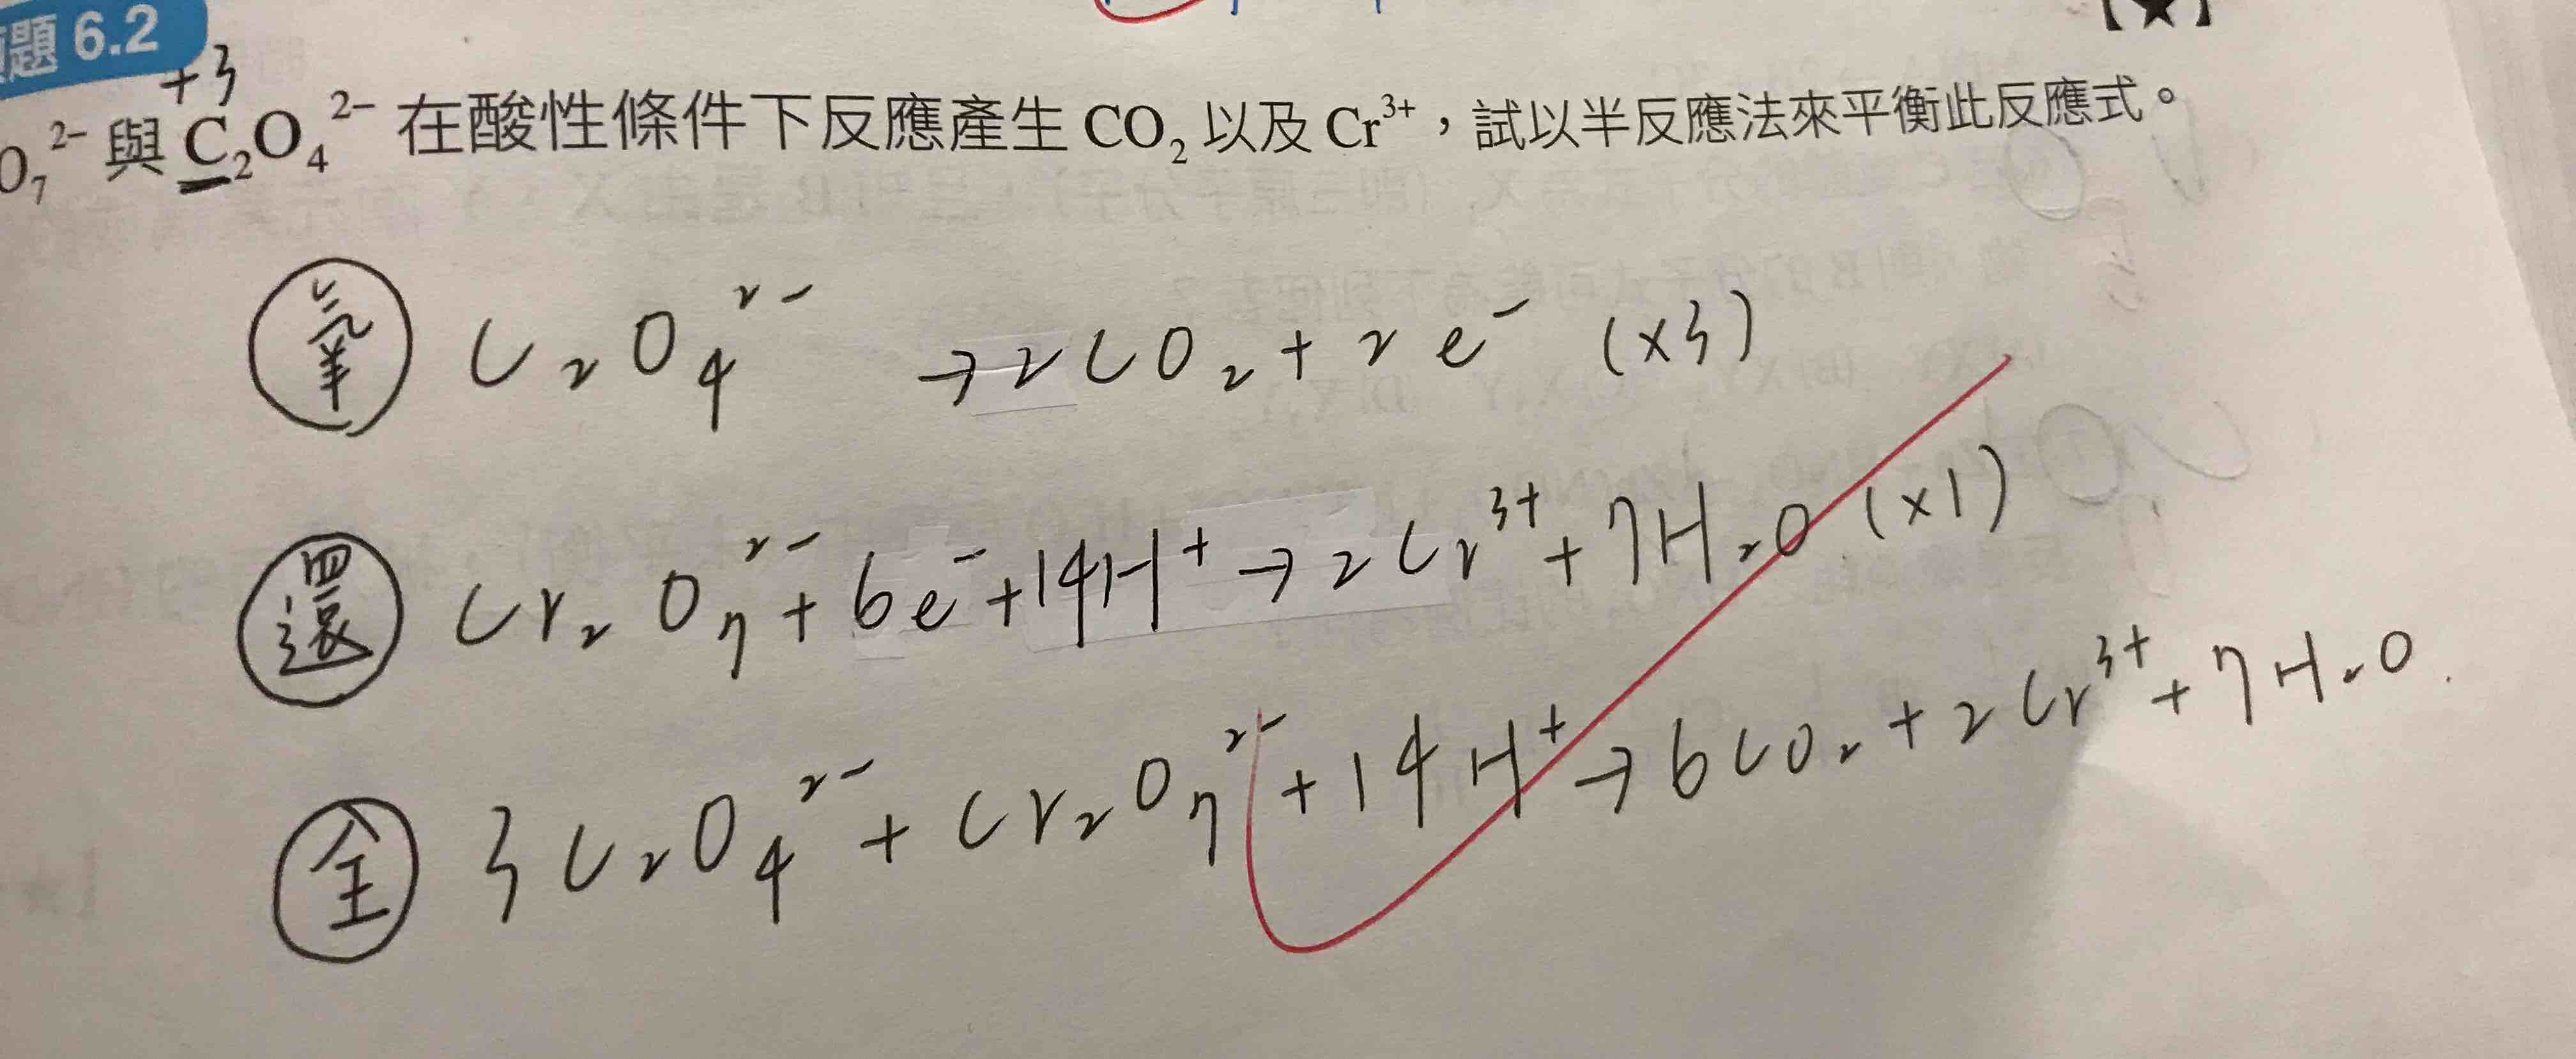 題 6.2
【★】
+3
O₇²⁻ 與 C₂O₄²⁻ 在酸性條件下反應產生 CO₂ 以及 Cr³⁺，試以半反應法來平衡此反應式。
氧 C₂O₄²⁻ → 2CO₂ + 2e⁻ (×3)
還 Cr₂O₇²⁻ + 6e⁻ + 14H⁺ → 2Cr³⁺ + 7H₂O (×1)
全 3C₂O₄²⁻ + Cr₂O₇²⁻ + 14H⁺ → 6CO₂ + 2Cr³⁺ + 7H₂O.